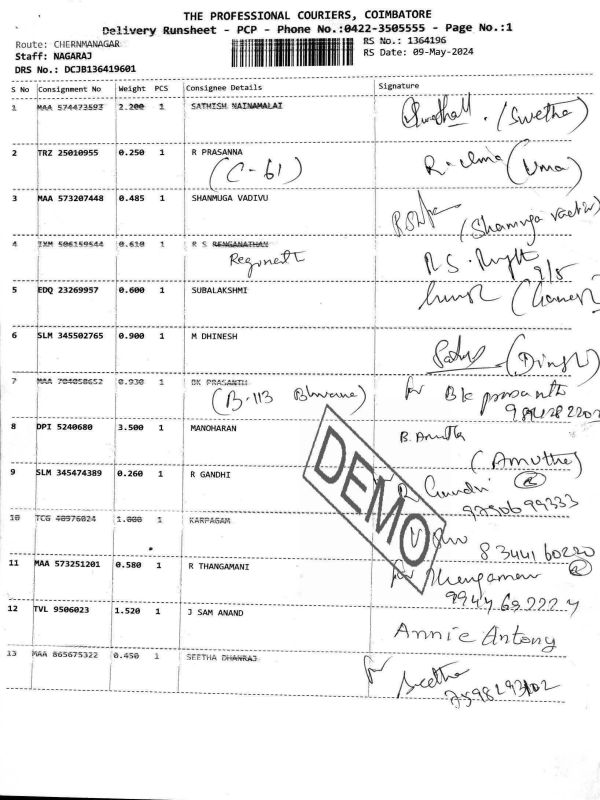 THE PROFESSIONAL COURIERS, COIMBATORE
Delivery Runsheet - PCP - Phone No.:0422-3505555 - Page No.:1
Route: CHERNMANAGAR RS No.: 1364196
Staff: NAGARAJ RS Date: 09-May-2024
DRS No.: DCJB136419601
S No Consignment No Weight PCS Consignee Details Signature
1 MAA 574473593 2.200 1 SATHISH NAINAMALAI (Swetha)
2 TRZ 25010955 0.250 1 R PRASANNA (Uma)
(C-61)
3 MAA 573207448 0.485 1 SHANMUGA VADIVU
4 IXM 506159544 0.610 1 R S RENGANATHAN R S.
9/5
5 EDQ 23269957 0.600 1 SUBALAKSHMI
6 SLM 345502765 0.900 1 M DHINESH
7 MAA 704058652 0.930 1 BK PRASANTH for Bk prasanth
(B-113
8 DPI 5240680 3.500 1 MANOHARAN B. Amutha
(Amutha)
DEMO
9 SLM 345474389 0.260 1 R GANDHI R Gandhi
10 TCG 40976024 1.000 1 KARPAGAM
8344160220
11 MAA 573251201 0.580 1 R THANGAMANI for
12 TVL 9506023 1.520 1 J SAM ANAND Annie Antony
13 MAA 865675322 0.450 1 SEETHA DHANRAJ for
Seetha